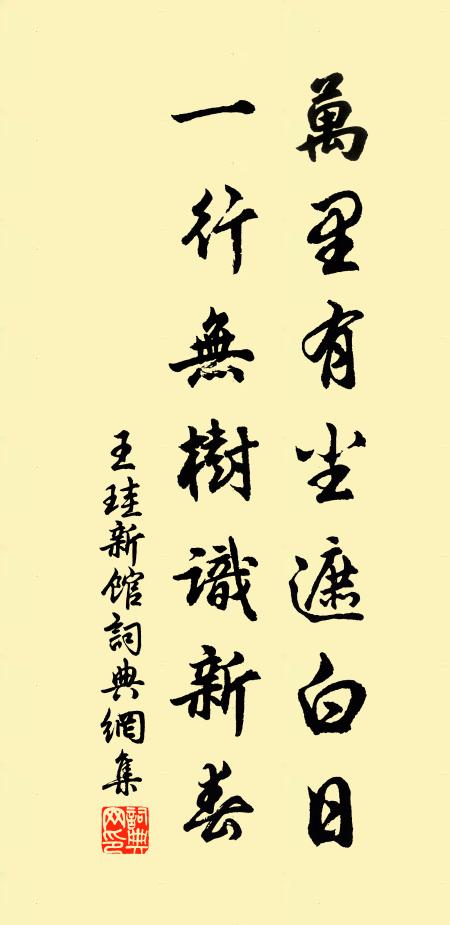 萬里有尘遮白日
一行無樹識新春
王珪新館詞典網集
詞典網印